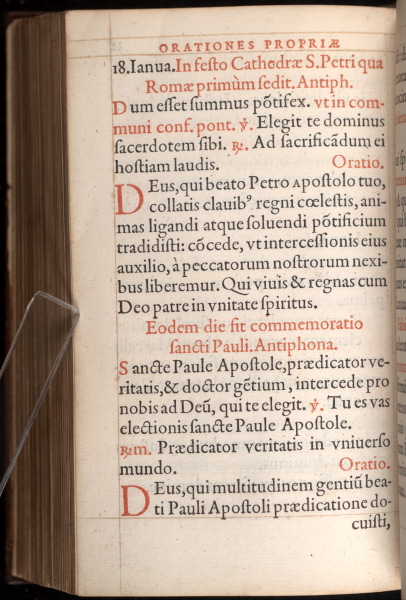 ORATIONES PROPRIÆ
18. Ianua. In festo Cathedræ S. Petri qua
Romæ primùm sedit. Antiph.
Dum esset summus põtifex. vt in com-
muni conf. pont. ℣. Elegit te dominus
sacerdotem sibi. ℟. Ad sacrificãdum ei
hostiam laudis. Oratio.
DEus, qui beato Petro Apostolo tuo,
collatis clauibꝰ regni cœlestis, ani-
mas ligandi atque soluendi põtificium
tradidisti: cõcede, vt intercessionis eius
auxilio, à peccatorum nostrorum nexi-
bus liberemur. Qui viuis & regnas cum
Deo patre in vnitate spiritus.
Eodem die fit commemoratio
sancti Pauli. Antiphona.
Sancte Paule Apostole, prædicator ve-
ritatis, & doctor gẽtium, intercede pro
nobis ad Deũ, qui te elegit. ℣. Tu es vas
electionis sancte Paule Apostole.
℟m. Prædicator veritatis in vniuerso
mundo. Oratio.
DEus, qui multitudinem gentiũ bea-
ti Pauli Apostoli prædicatione do-
cuisti,